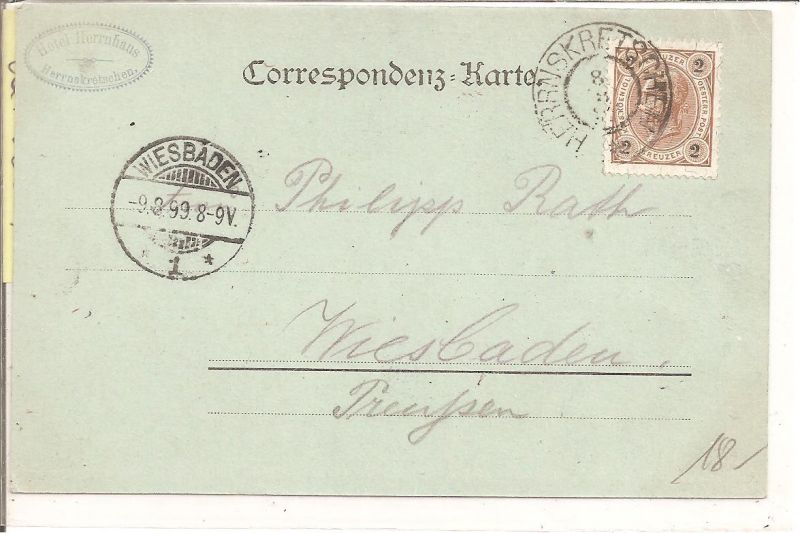 Hotel Herrnhaus
Herrnskretschen.
Correspondenz-Karte
HERRNSKRETSCHEN
2 2
KREUZER
2 2
WIESBADEN
-9.8.99.8-9V.
* 1 *
Philipp Rath
Wiesbaden.
Preußen
18.-